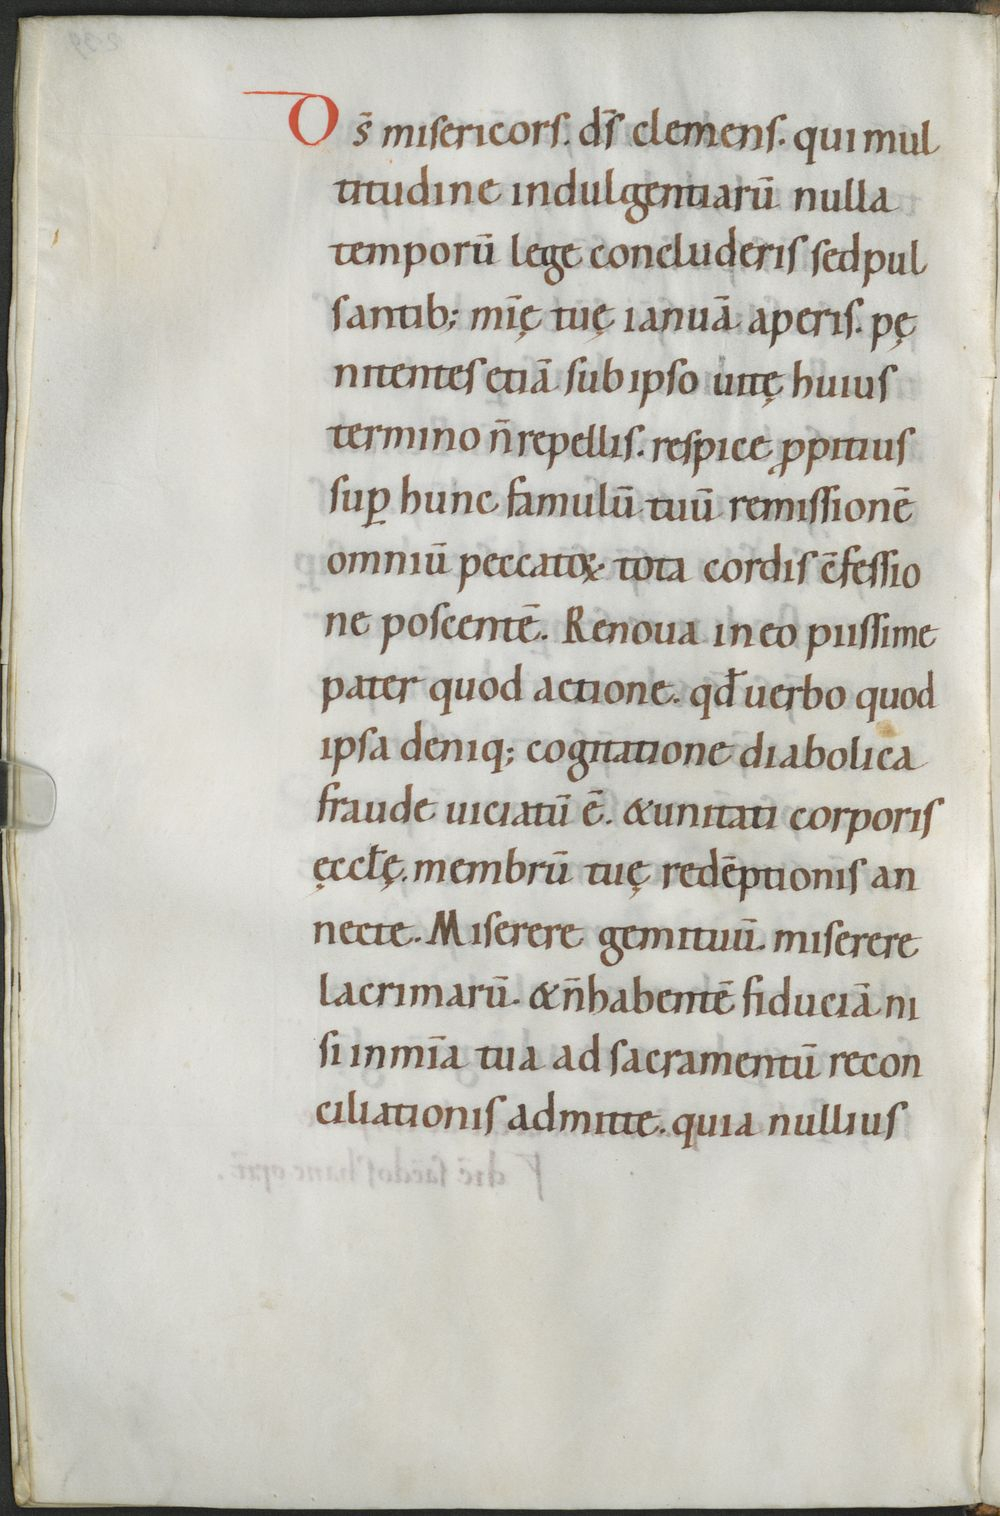 Ds̄ misericors. ds̄ clemens. qui mul
titudine indulgentiarū nulla
temporū lege concluderis sed pul
santib; mīę tuę ianuā aperis. pę
nitentes etiā sub ipso uitę huius
termino n̄ repellis. respice ꝓpitius
suꝑ hunc famulū tuū remissionē
omniū peccatoꝝ tota cordis c̄fessio
ne poscentē. Renoua in eo piissime
pater quod actione. qđ uerbo quod
ipsa deniq; cogitatione diabolica
fraude uiciatū ē. & unitati corporis
ęccłę. membrū tuę redēptionis an
necte. Miserere gemituū. miserere
lacrimarū. & n̄ habentē fiduciā ni
si in mīa tua ad sacramentū recon
ciliationis admitte. quia nullius